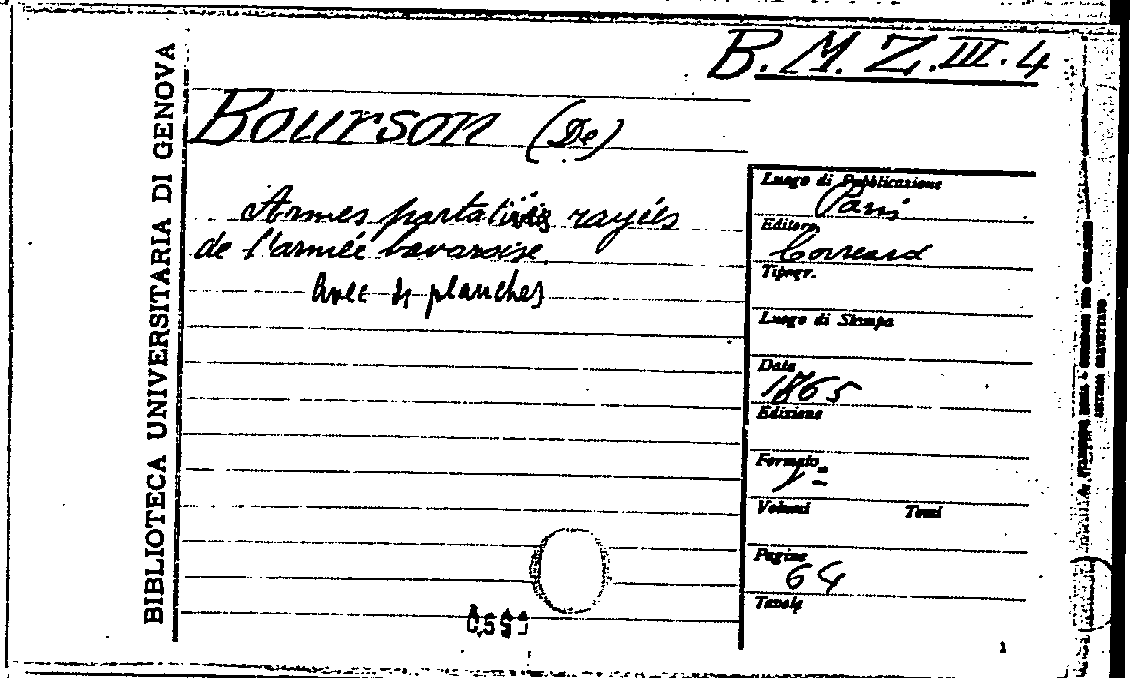 B.M.Z.III.4
BIBLIOTECA UNIVERSITARIA DI GENOVA
Bourson (De)
Armes portatives rayées
de l'armée bavaroise
Avec 4 planches
Luogo di Pubblicazione
Paris
Editore
Correard
Tipogr.
Luogo di Stampa
Data
1865
Edizione
Formato
Volumi Tomi
Pagine
64
Tavole
1